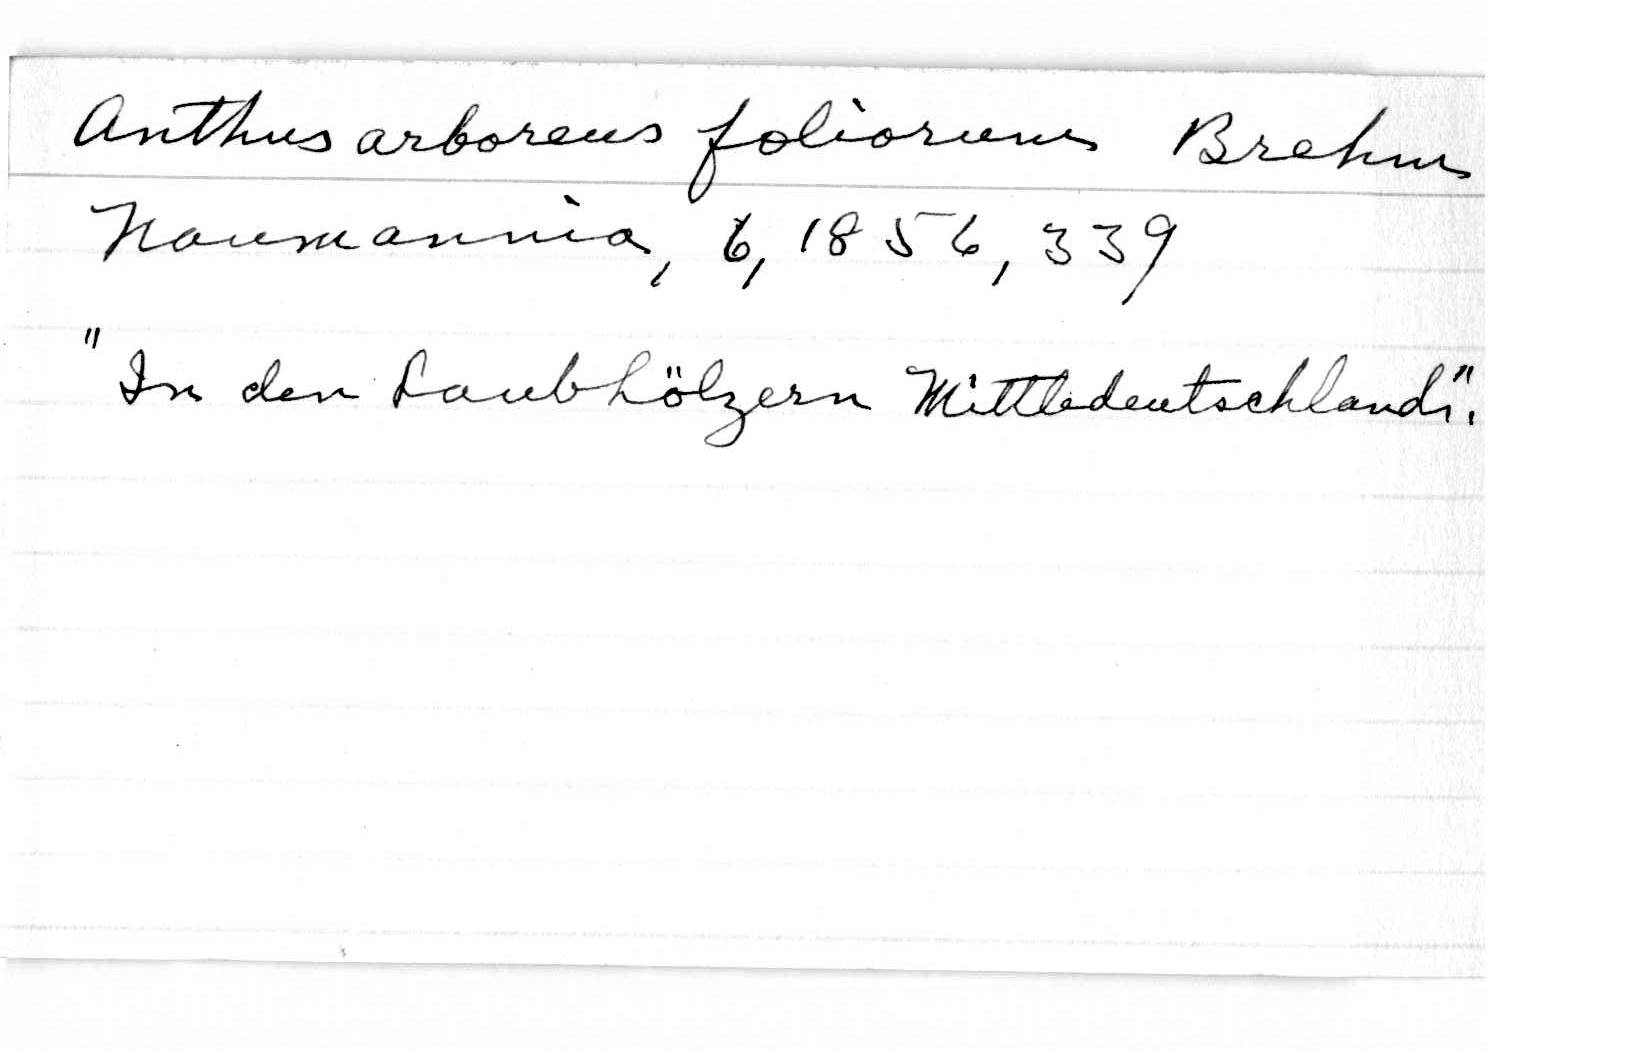 Anthus arboreus foliorum Brehm
Naumannia, 6, 1856, 339
"In den Laubhölzern Mitteldeutschlands".